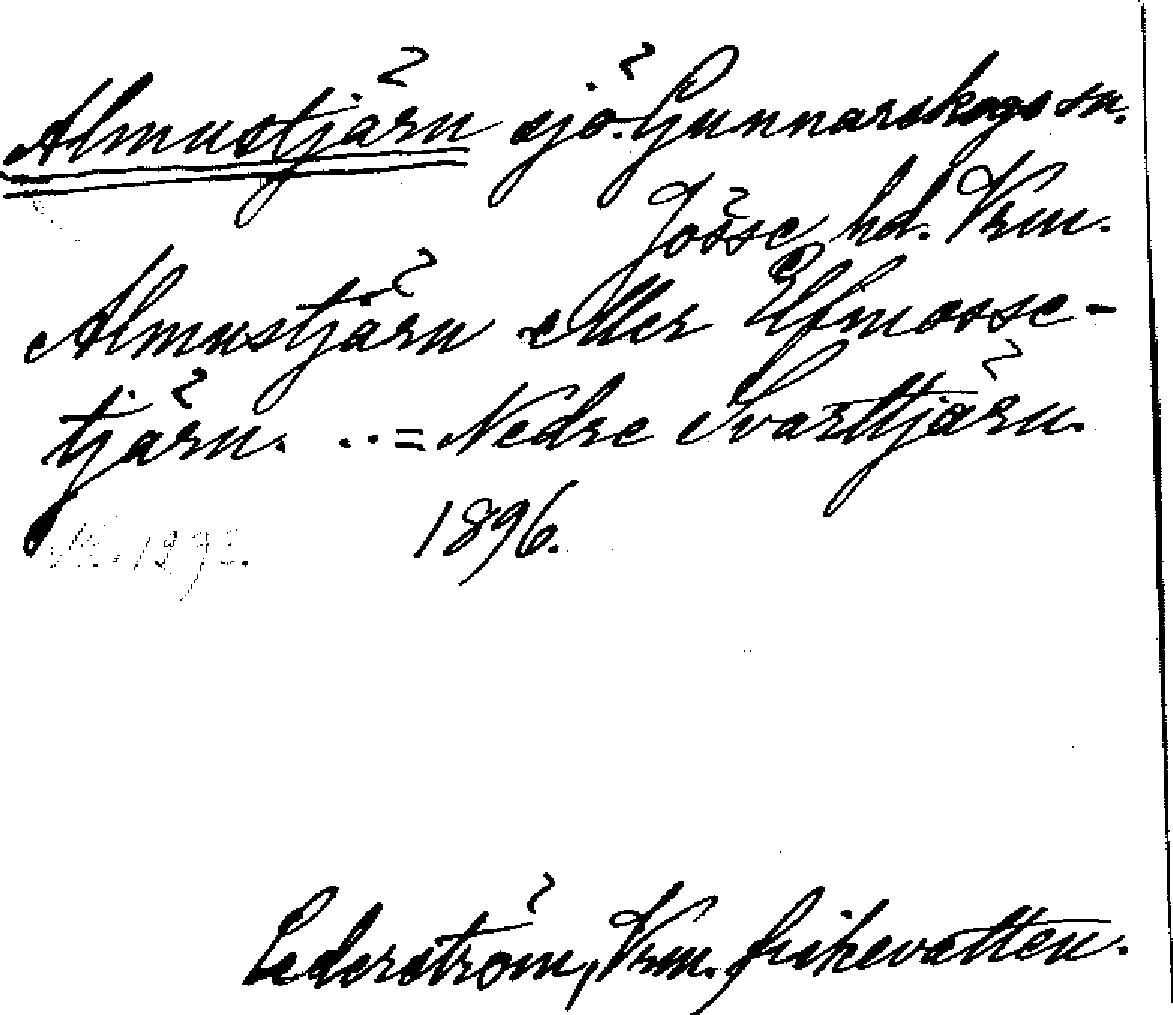 Almustjärn sjö. Gunnarskogs sn.
Jösse hd. Vrm.
Almustjärn eller Elfmosse-
tjärn. ..= Nedre Svarttjärn.
1896.
Cederström, Vrm. fiskevatten.